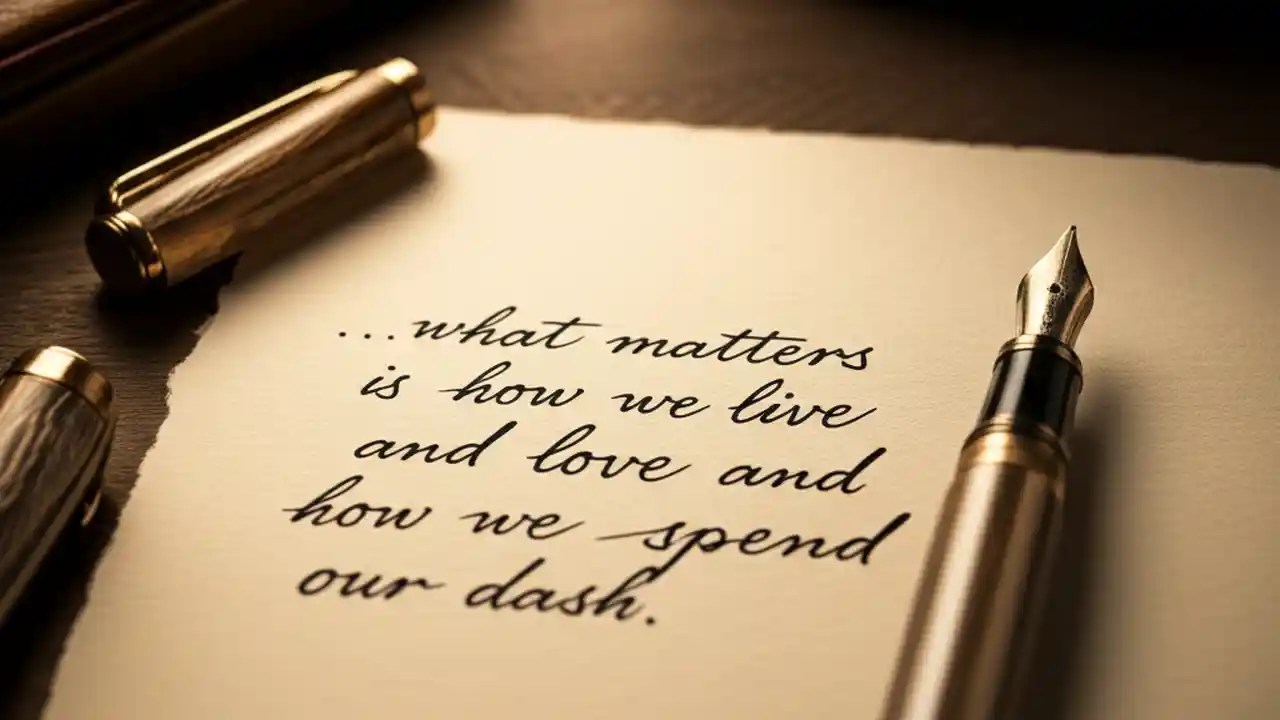 ...what matters
is how we live
and love and
how we spend
our dash.